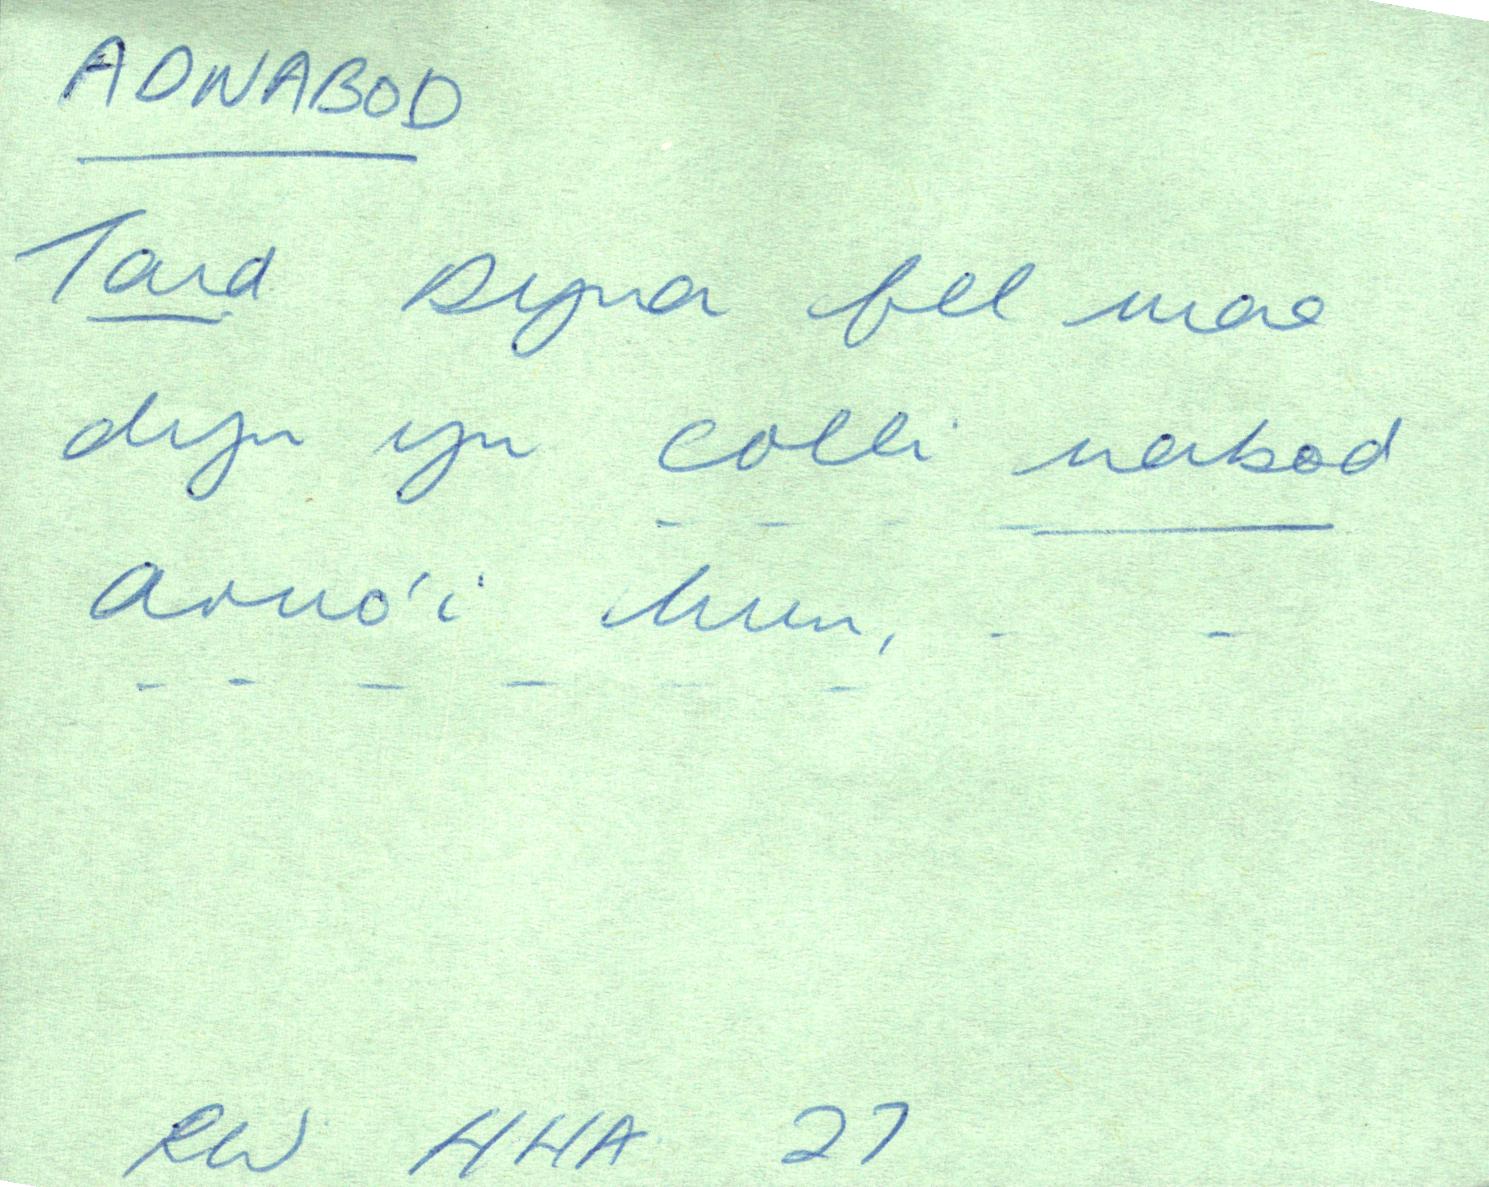 ADNABOD
Tard Dyna fel mae
dyn yn colli nabod
arno'i hun, - -
RW HHA 27